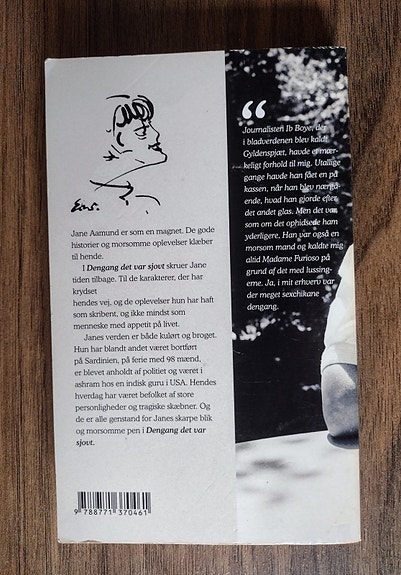 Jane Aamund er som en magnet. De gode
historier og morsomme oplevelser klæber
til hende.
I Dengang det var sjovt skruer Jane
tiden tilbage. Til de karakterer, der har
krydset
hendes vej, og de oplevelser hun har haft
som skribent, og ikke mindst som
menneske med appetit på livet.
Janes verden er både kulørt og broget.
Hun har blandt andet været bortført
på Sardinien, på ferie med 98 mænd,
er blevet anholdt af politiet og været i
ashram hos en indisk guru i USA. Hendes
hverdag har været befolket af store
personligheder og tragiske skæbner. Og
de er alle genstand for Janes skarpe blik
og morsomme pen i Dengang det var
sjovt.
9 788771 370461
“
Journalisten Ib Boye, der
i bladverdenen blev kaldt
Gyldenspjæt, havde et mær-
keligt forhold til mig. Utallige
gange havde han fået en på
kassen, når han blev nærgå-
ende, hvad han gjorde efter
det andet glas. Men det var
som om det ophidsede ham
yderligere. Han var også en
morsom mand og kaldte mig
altid Madame Furioso på
grund af det med lussing-
erne. Ja, i mit erhverv var
der meget sexchikane
dengang.